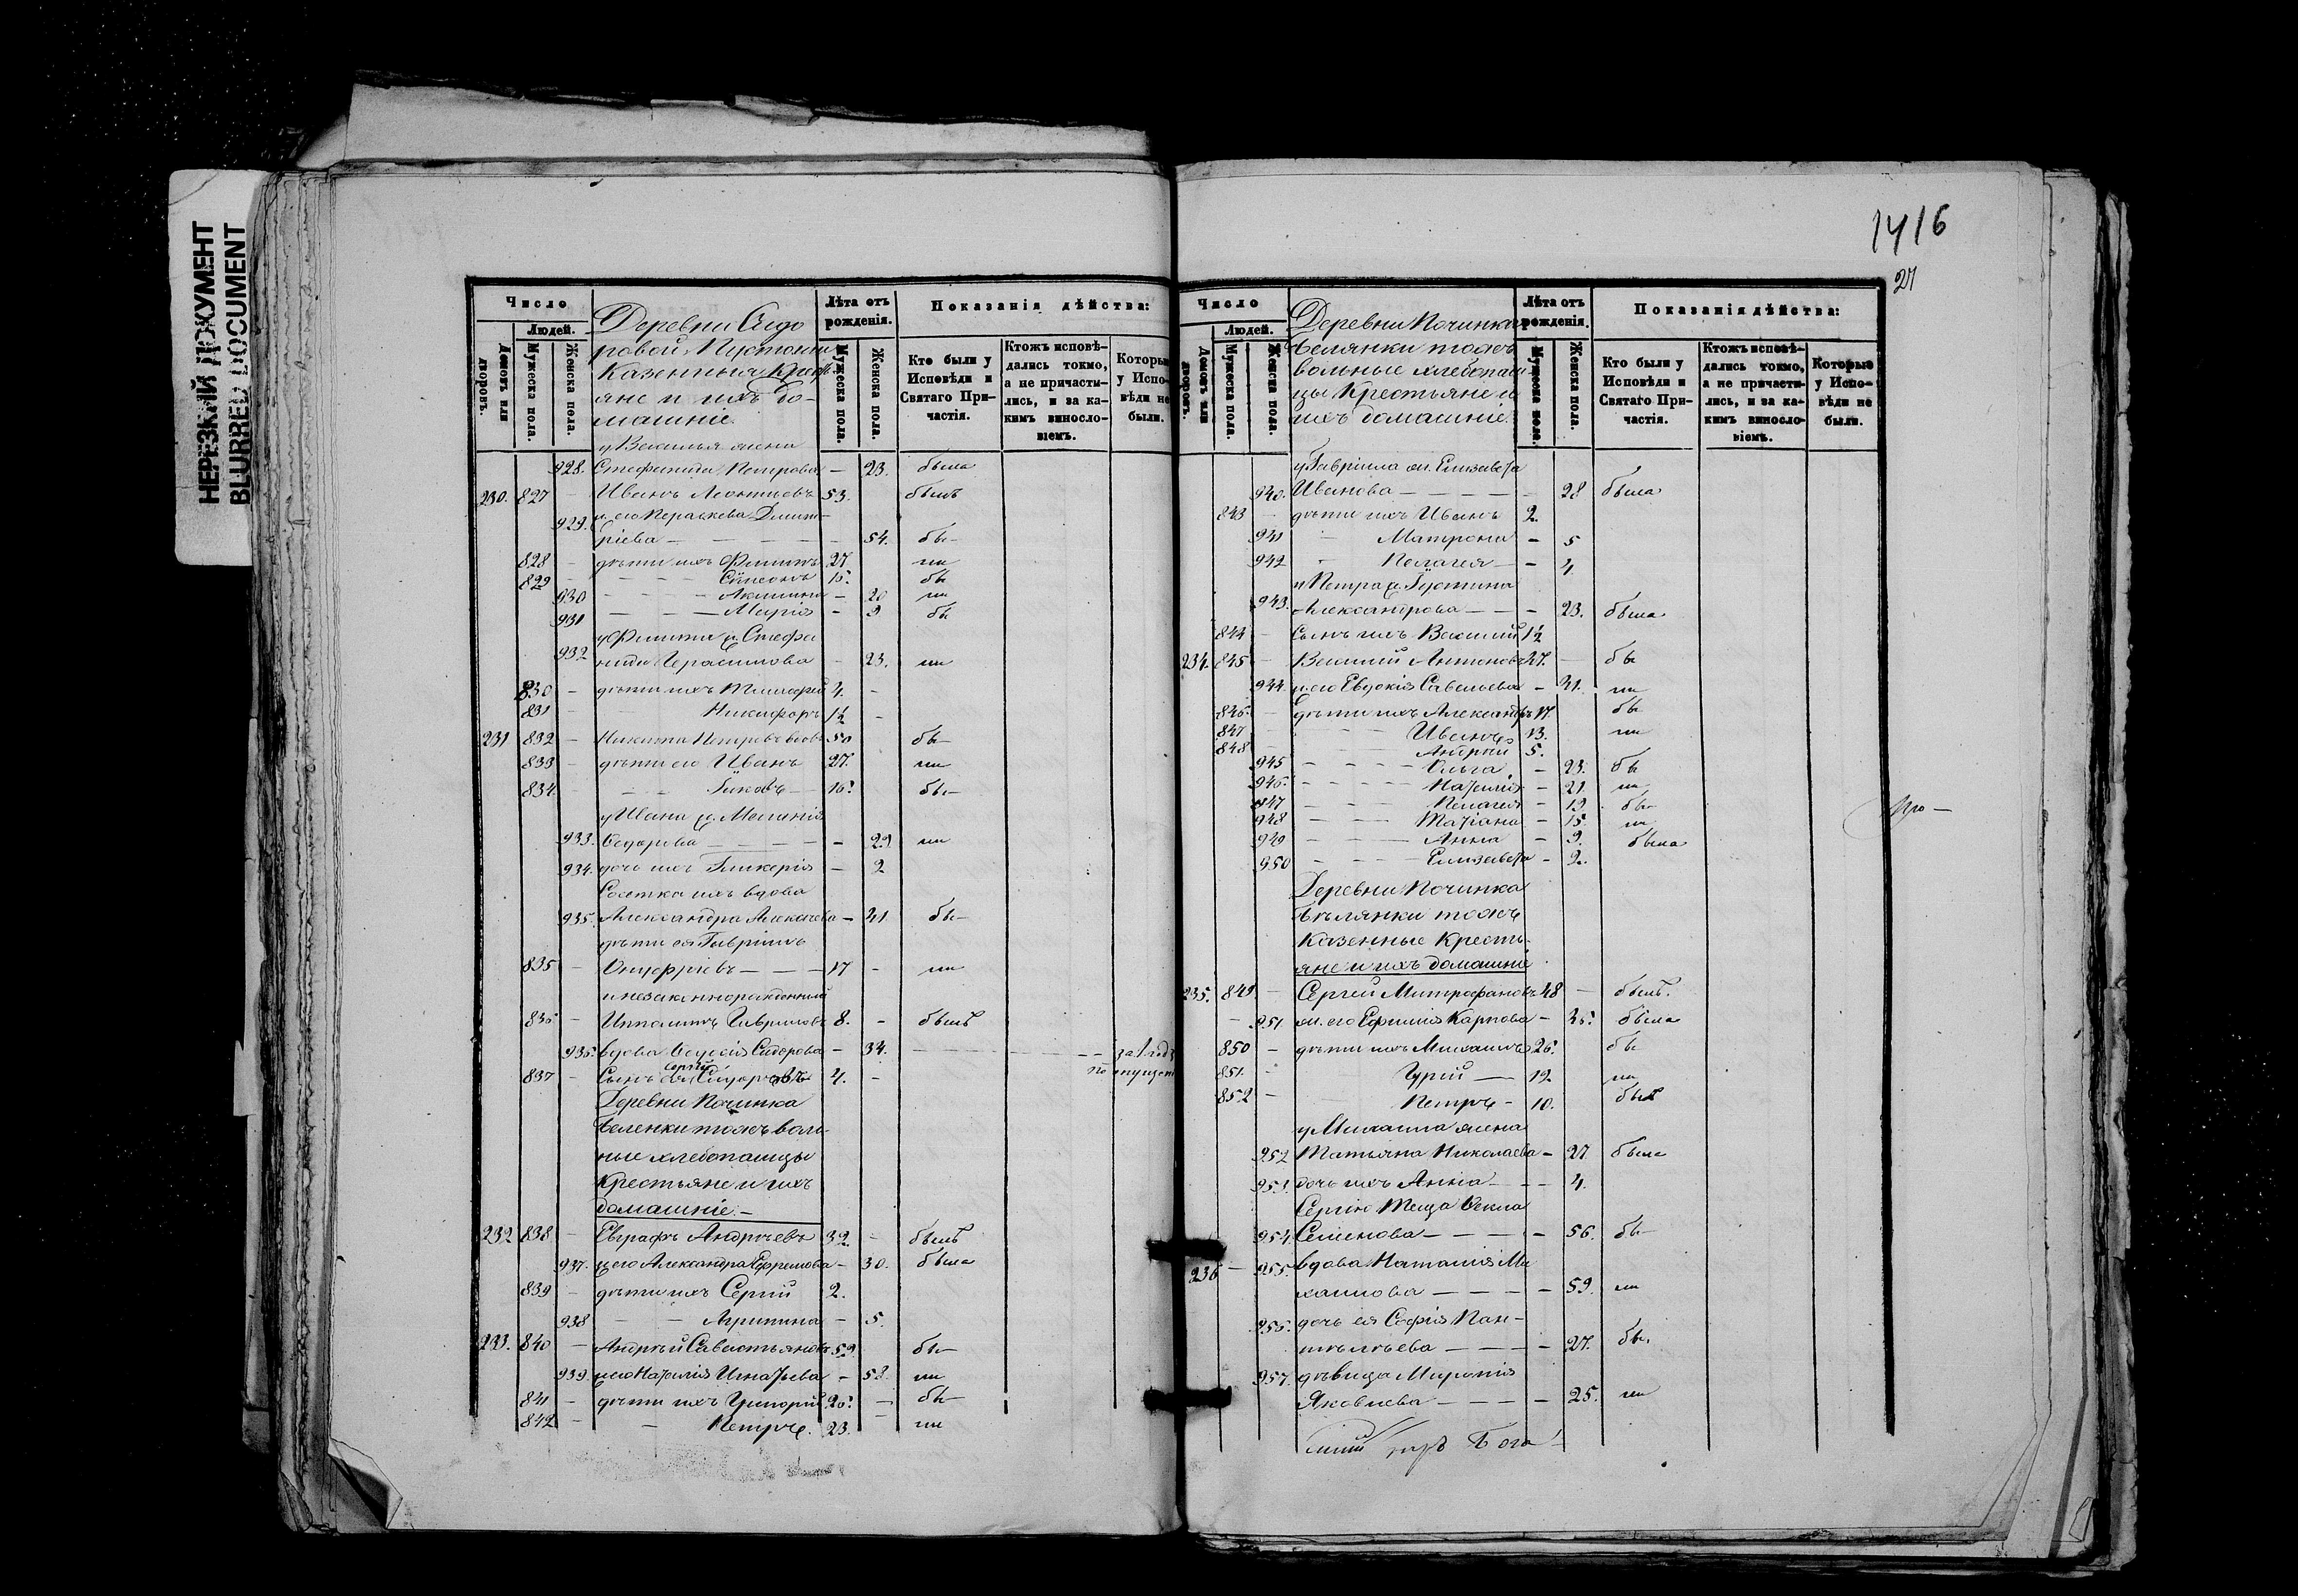 НЕРЕЗКИЙ ДОКУМЕНТ
BLURRED DOCUMENT
Число
Людей.
Домовъ или дворовъ.
Мужеска пола.
Женска пола.
Деревни Сидо
ровой Пустоши
Казенныя Кресть
яне и ихъ до-
машніе
Лѣта отъ рожденія.
Мужеска пола.
Женска пола.
Показанія дѣйства:
Кто были у Исповѣди и Святаго Причастія.
Ктожъ исповѣдались токмо, а не причастились, и за какимъ винословіемъ.
Которые у Исповѣди не были.
у Василья жена
928. Стефанида Петрова – 23. была
230. 827 – Иванъ Леонтьевъ 53. былъ
929. ж. его Параскева Димит-
ріева – – – – – 54. бы-
828 – дѣти ихъ Филипъ 27. ли
829 – – – Сѵмеонъ 15. бы
930 – – – Акилина – 20 ли
931 – – – Марія – 9 бы
у Филипа ж. Стефа
932 нида Герасимова – 23. ли
830 – дѣти ихъ Тимофей 4. –
831 – Никифоръ 1½ –
231 832 – Никита Петровъ вдовъ 50 бы-
833 – дѣти его Иванъ 27. ли
834. – – Яковъ – 16. бы-
у Ивана ж. Меланія
933. Ѳедорова – – – – – 29. ли
934. дочь ихъ Гликерія – 2
Сестка ихъ вдова
935. Александра Алексеева – 41 бы-
дѣти ея Гавріилъ
835 – Онуфріевъ – – – 17 – ли
и незаконнорожденный
836 – Ипполитъ Гавриловъ 8. – былъ
936. вдова Ѳеодосія Сидорова – 34. – – –
за 1 годъ
по опущен
837 – Сынъ ея Сергѣй Сидоровъ 4. –
Деревни Починка
Беленки тожъ воль-
ные хлебопашцы
Крестьяне и ихъ
домашніе. –
232 838 – Евграфъ Андреевъ 32. – былъ
937. ж. его Александра Ефремова – 30. была
839 – дѣти ихъ Сергій 2.
938 – – Агрипина – 5.
233. 840 – Андрѣй Савостьяновъ 59. бы-
939. ж. его Наталія Игнатьева – 58. ли
841 – дѣти ихъ Григорій 26. – бы-
842 – – Петръ. 23. – ли
1416
27
Число
Людей.
Домовъ или дворовъ.
Мужеска пола.
Женска пола.
Деревни Починка
Белянки тожъ
вольные хлебопаш-
цы Крестьяне и
ихъ домашніе.
Лѣта отъ рожденія.
Мужеска пола.
Женска пола.
Показанія дѣйства:
Кто были у Исповѣди и Святаго Причастія.
Ктожъ исповѣдались токмо, а не причастились, и за какимъ винословіемъ.
Которые у Исповѣди не были.
у Гавріила ж. Елизавета
940. Иванова – – – – – 28 была
843 – дѣти ихъ Иванъ 2.
941 – Матрона – 5
942 – Пелагея – – 4.
у Петра ж. Іустина
943. Александрова – – – 23. была
844 – Сынъ ихъ Василий 1½
234. 845 – Василий Антоновъ 47. – бы
944. ж. его Евдокія Савельева – 41. ли
846. – дѣти ихъ Александръ 17. бы
847 – – – Иванъ 13. ли
848 – – – Андрѣй 5.
945 – – – Ольга – 23. бы
946. – – – Наталія – 21. ли
947 – – – Пелагея – 19. бы-
948 – – – Татіана – 15. ли
949 – – – Анна – 9. была
950 – – – Елизавета – 2.
Про –
Деревни Починка
Бѣлянки тожъ
Казенные Кресть-
яне и ихъ домашніе
235. 849. – Сергей Митрофановъ 48 – былъ.
951 ж. его Ефимія Карпова – 45. была
850 – дѣти ихъ Михаилъ 26. бы
851. – Гурій – 12. ли
852 – Петръ – 10. былъ
у Михаила жена
952 Татьяна Николаева – 27 была
953. дочь ихъ Анна – – – 4.
Сергію Теща Ѳекла
954. Семенова – – – – – 56. бы-
236 – 955. вдова Наталія Ми
хаилова – – – – – 59. ли
956. дочь ея Софія Пан-
тѣлѣева – – – – 27. бы.
957. дѣвица Миропія
Яковлева – – – – 25. ли